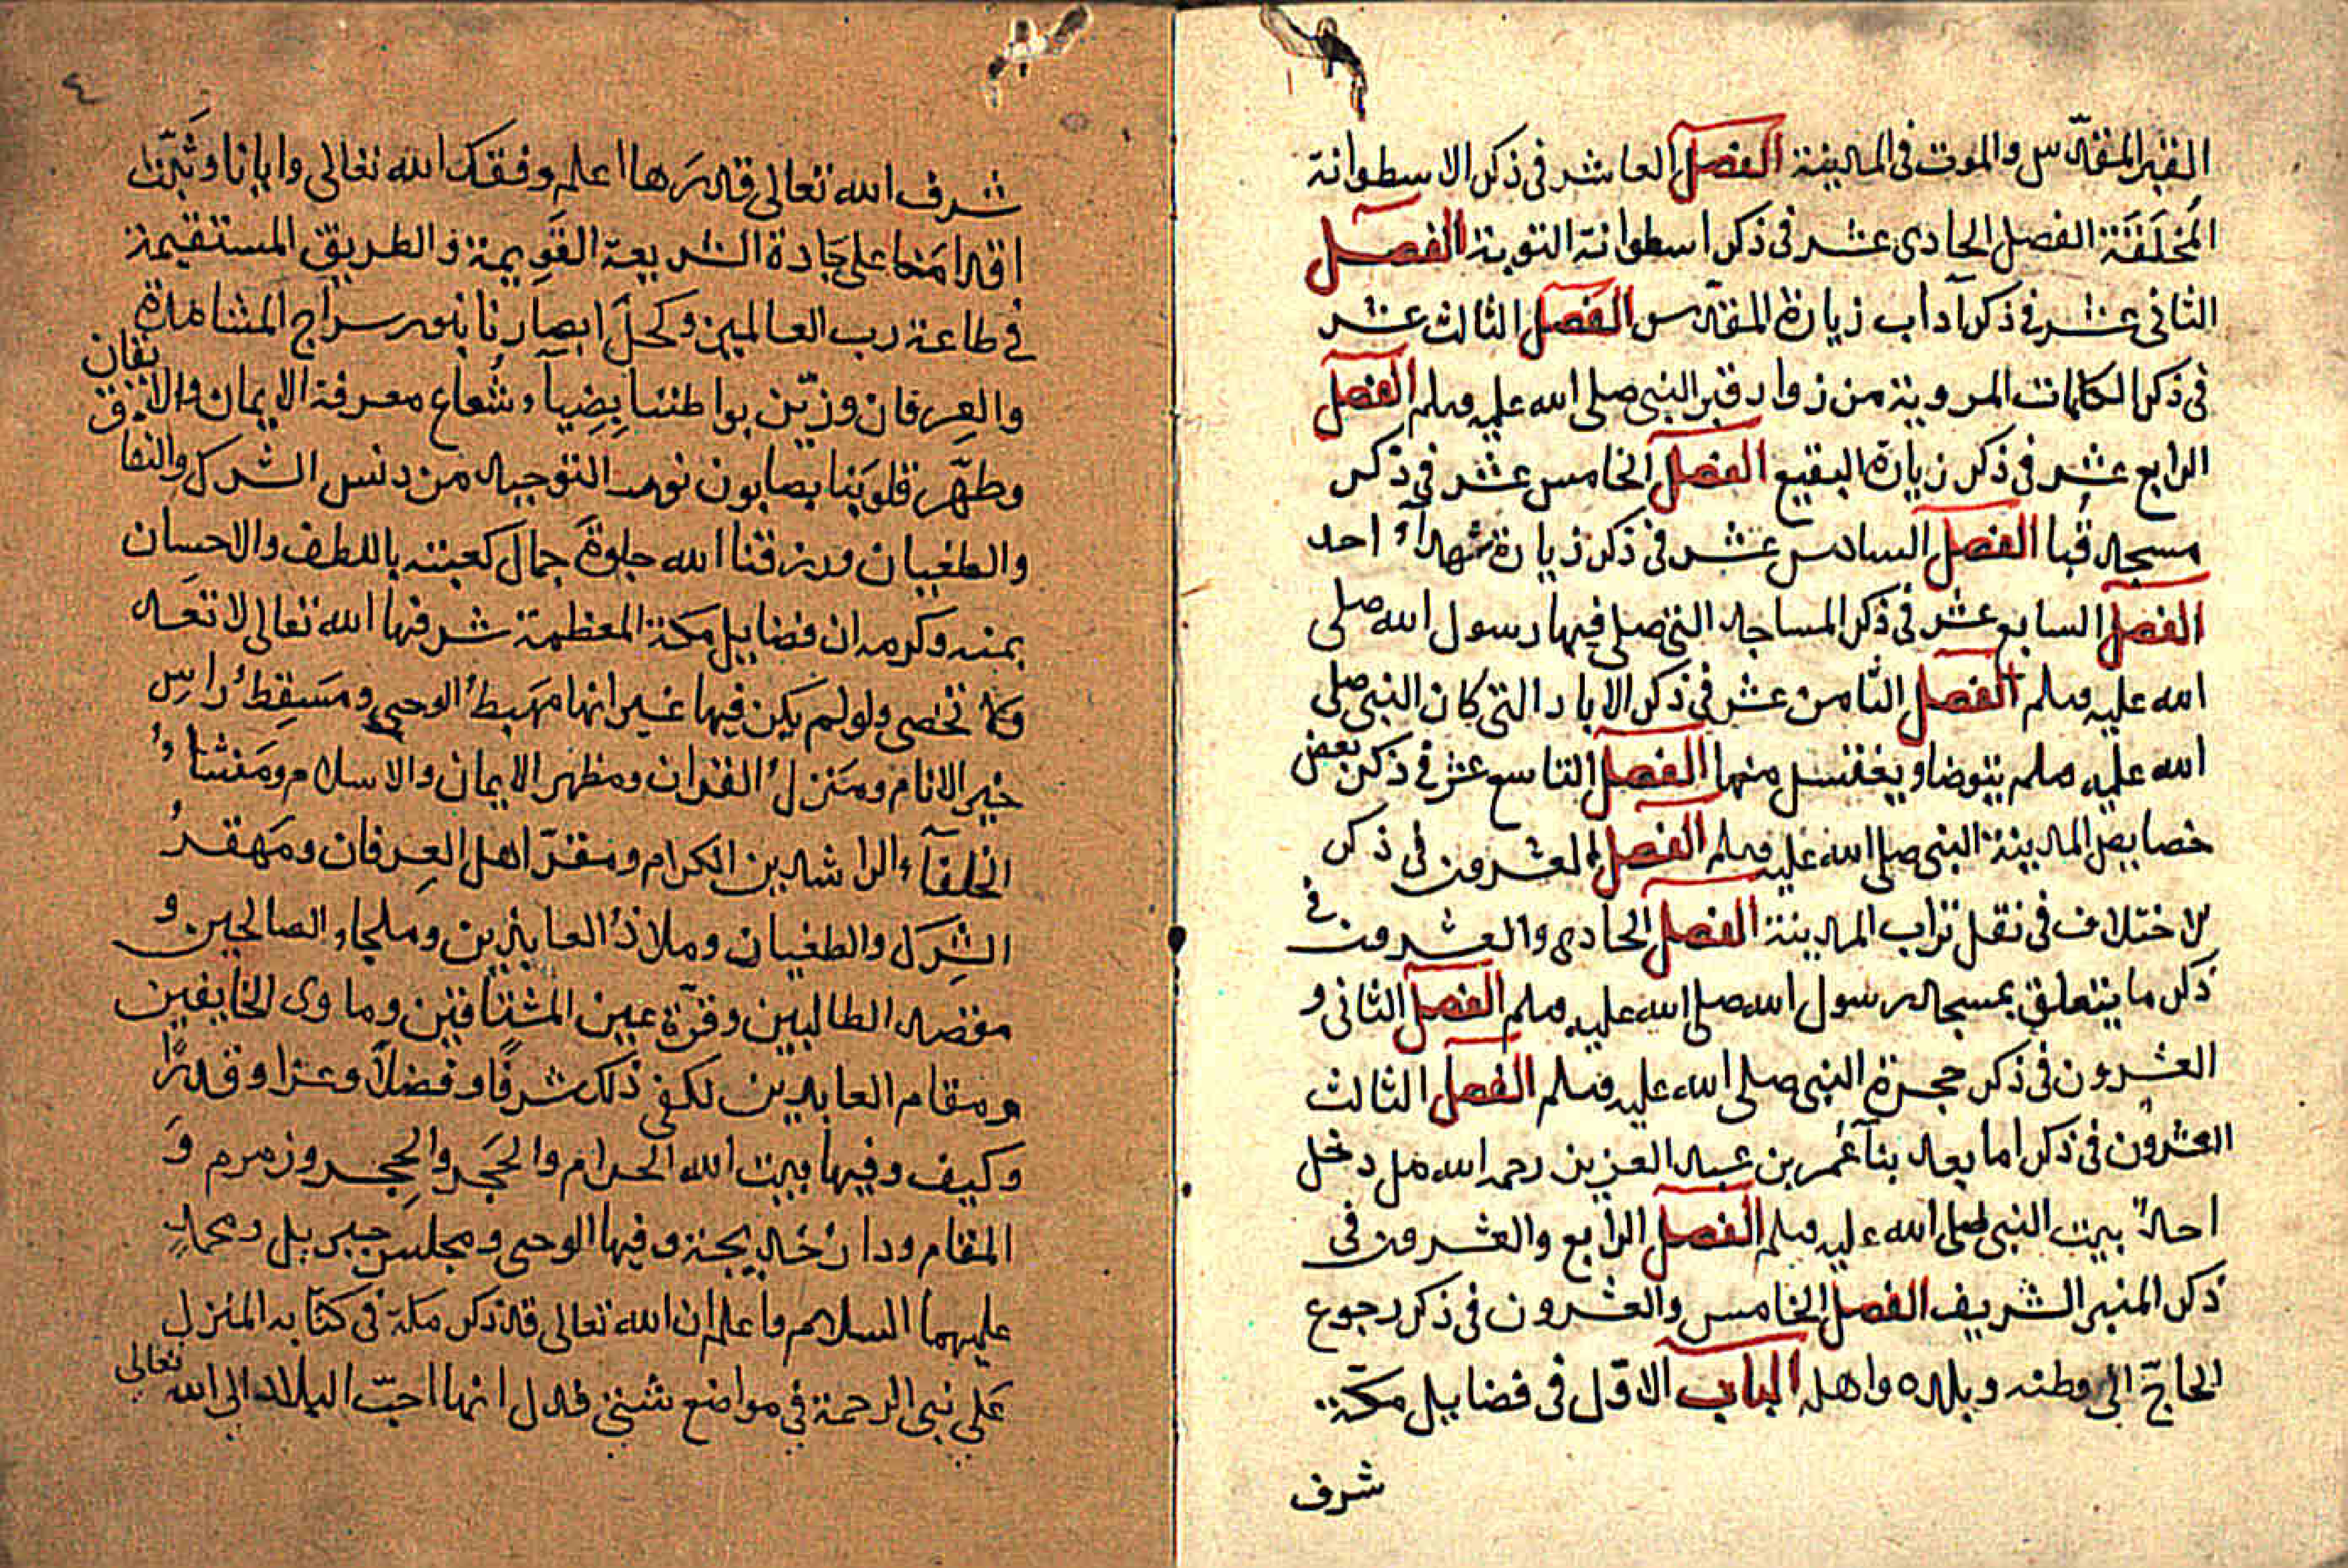 القبر المقدّس والموت فى المدينة الفصل العاشر فى ذكر الاسطوانة
المخَلَقَة الفصل الحادى عشر فى ذكر اسطوانة التوبة الفصل
الثانى عشر فى ذكر آداب زيارة المقدّس الفصل الثالث عشر
فى ذكر الكلمات المروية من زوار قبر النبى صلى الله عليه وسلم الفصل
الرابع عشر فى ذكر زيارة البقيع الفصل الخامس عشر فى ذكر
مسجد قُبا الفصل السادس عشر فى ذكر زيارة شهدآء احد
الفصل السابع عشر فى ذكر المساجد التى صلى فيها رسول الله صلى
الله عليه وسلم الفصل الثامن عشر فى ذكر الابار التى كان النبى صلى
الله عليه وسلم يتوضا ويغتسل منها الفصل التاسع عشر فى ذكر بعض
خصايص المدينة النبى صلى الله عليه وسلم الفصل العشرون فى ذكر
الاختلاف فى نقل تراب المدينة الفصل الحادى والعشرون فى
ذكر ما يتعلق بمسجد رسول الله صلى الله عليه وسلم الفصل الثانى و
العشرون فى ذكر حجرة النبى صلى الله عليه وسلم الفصل الثالث
العشرون فى ذكر اما بعد بنآ عُمر بن عبد العزيز رحمه الله هل دخل
احدٌ بيت النبى صلى الله عليه وسلم الفصل الرابع والعشرون فى
ذكر المنبر الشريف الفصل الخامس والعشرون فى ذكر رجوع
الحاجّ الى وطنه وبلده واهله الباب الاوّل فى فضايل مكّة
شرف
٤
شرف الله تعالى قدرَها اعلم وفقك الله تعالى وايانا وثَبّت
اقدامَنا على جادة الشريعة القَوِيمة والطريق المستقيمة
فى طاعة رب العالمين وكحلَ ابصارنا بنور سراج المشاهدة
والعِرفان وزيّن بواطننا بِضِيآء وشُعاع معرفة الايمان والاتقان
وطهّر قلوبَنا بصابون نور التوحيد من دنس الشرك والنفاق
والطغيان ورزقنا الله جلوةَ جمال كعبته باللطف والاحسان
بمنه وكرمه ان فضايل مكة المعظمة شرفها الله تعالى لا تعد
ولا تحصى ولو لم يكن فيها غير انها مَهبِطُ الوحى ومَسقِطُ راسِ
خير الانام ومَنزلُ القران ومظهر الايمان والاسلام ومَنشاءُ
الخلفآء الراشدين الكرام ومقرّ اهل العِرفان ومَهقرُ
الشِرك والطغيان وملاذُ العايذين وملجاء الصالحين و
مقصد الطالبين وقرّة عين المشتاقين وماوى الخايفين
ومقام العابدين لكفى ذلك شرفًا وفضلًا وعزا وقدرًا
وكيف وفيها بيت الله الحرام والحَجَر والحِجر وزمزم وَ
المقام ودارُ خديجة وفيها الوحى ومجلس جبريل ومحمدٍ
عليهما السلام واعلم ان الله تعالى قد ذكر مكة فى كتابه المنزل
على نبى الرحمة فى مواضع شتى فدل انها احبّ البلاد الى الله تعالى